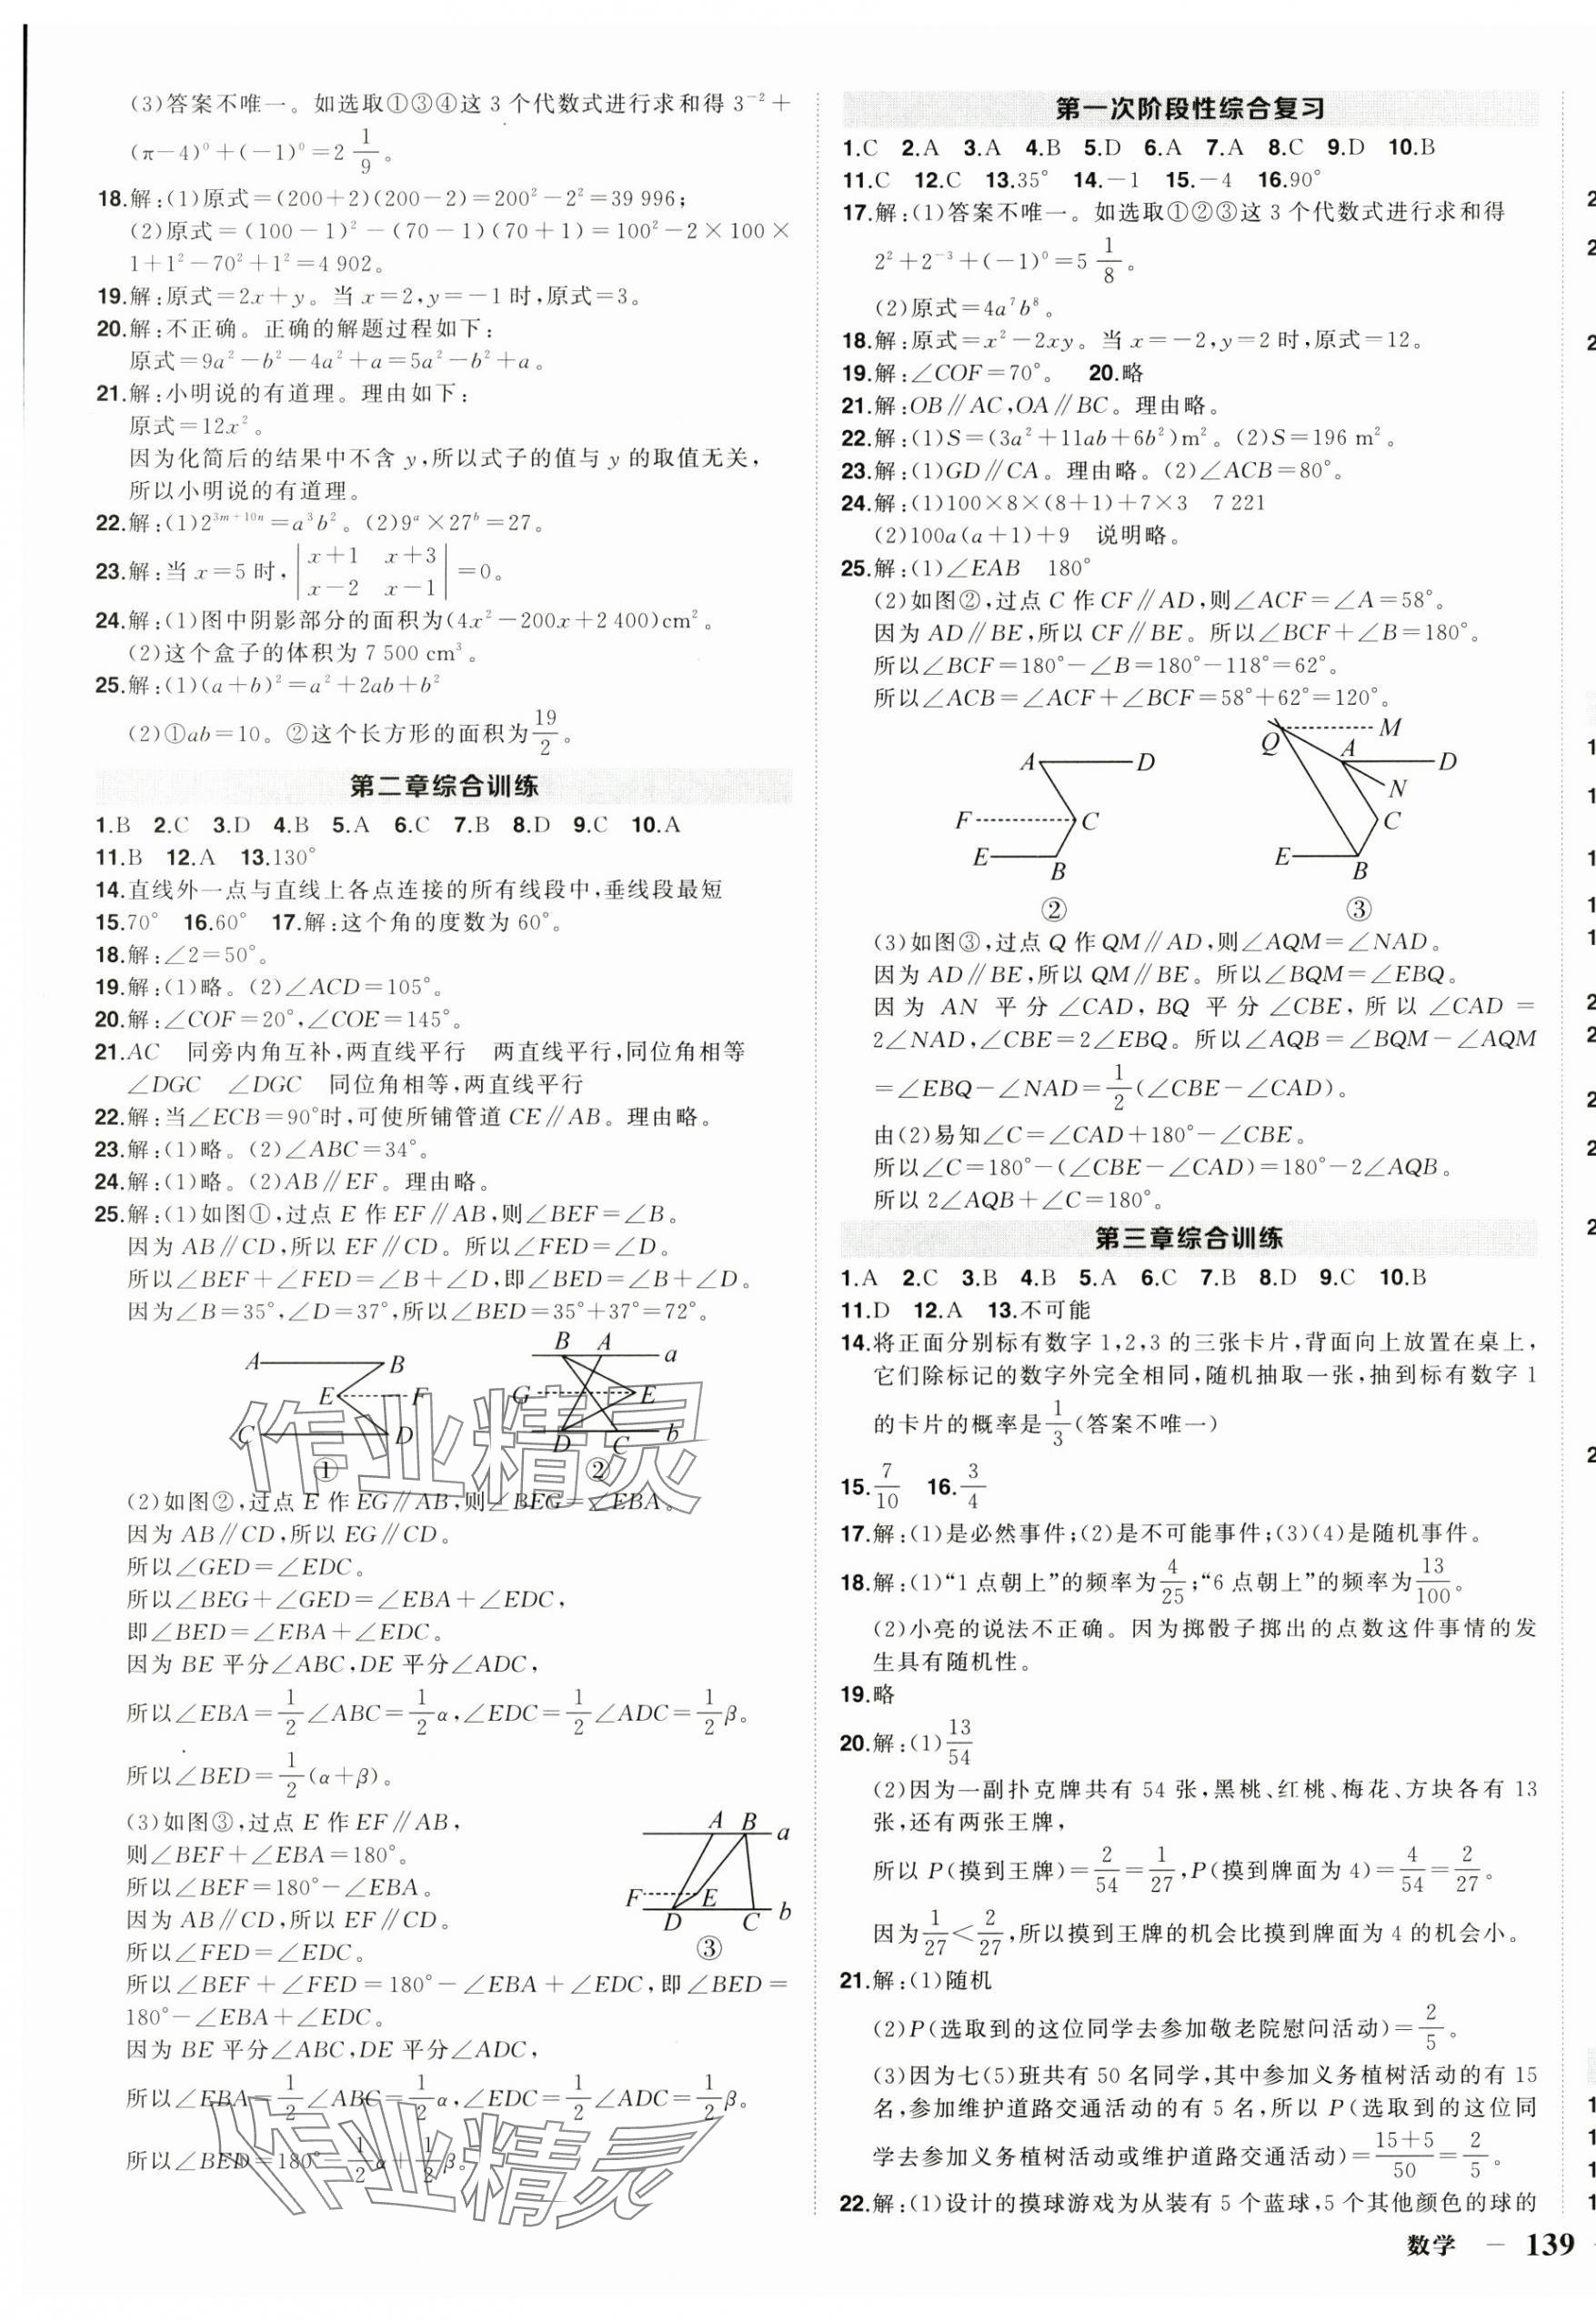 (3)答案不唯一。如选取①③④这3个代数式进行求和得 3⁻²+
(π-4)⁰+(-1)⁰=2 1/9。
18.解:(1)原式=(200+2)(200-2)=200²-2²=39 996;
(2)原式=(100-1)²-(70-1)(70+1)=100²-2×100×
1+1²-70²+1²=4 902。
19.解:原式=2x+y。当 x=2,y=-1时,原式=3。
20.解:不正确。正确的解题过程如下:
原式=9a²-b²-4a²+a=5a²-b²+a。
21.解:小明说的有道理。理由如下:
原式=12x²。
因为化简后的结果中不含 y,所以式子的值与 y 的取值无关,
所以小明说的有道理。
22.解:(1)2³ᵐ⁺¹⁰ⁿ=a³b²。(2)9ᵃ×27ᵇ=27。
23.解:当 x=5时,|x+1 x+3
x-2 x-1|=0。
24.解:(1)图中阴影部分的面积为(4x²-200x+2 400)cm²。
(2)这个盒子的体积为 7 500 cm³。
25.解:(1)(a+b)²=a²+2ab+b²
(2)①ab=10。②这个长方形的面积为19/2。
第二章综合训练
1.B 2.C 3.D 4.B 5.A 6.C 7.B 8.D 9.C 10.A
11.B 12.A 13.130°
14.直线外一点与直线上各点连接的所有线段中,垂线段最短
15.70° 16.60° 17.解:这个角的度数为 60°。
18.解:∠2=50°。
19.解:(1)略。(2)∠ACD=105°。
20.解:∠COF=20°,∠COE=145°。
21.AC 同旁内角互补,两直线平行 两直线平行,同位角相等
∠DGC ∠DGC 同位角相等,两直线平行
22.解:当∠ECB=90°时,可使所铺管道 CE∥AB。理由略。
23.解:(1)略。(2)∠ABC=34°。
24.解:(1)略。(2)AB∥EF。理由略。
25.解:(1)如图①,过点 E 作 EF∥AB,则∠BEF=∠B。
因为 AB∥CD,所以 EF∥CD。所以∠FED=∠D。
所以∠BEF+∠FED=∠B+∠D,即∠BED=∠B+∠D。
因为∠B=35°,∠D=37°,所以∠BED=35°+37°=72°。
A B E F C D ①
B A a G E D C b ②
作业精灵
(2)如图②,过点 E 作 EG∥AB,则∠BEG=∠EBA。
因为 AB∥CD,所以 EG∥CD。
所以∠GED=∠EDC。
所以∠BEG+∠GED=∠EBA+∠EDC,
即∠BED=∠EBA+∠EDC。
因为 BE 平分∠ABC,DE 平分∠ADC,
所以∠EBA=1/2∠ABC=1/2α,∠EDC=1/2∠ADC=1/2β。
所以∠BED=1/2(α+β)。
(3)如图③,过点 E 作 EF∥AB,
则∠BEF+∠EBA=180°。
所以∠BEF=180°-∠EBA。
因为 AB∥CD,所以 EF∥CD。
所以∠FED=∠EDC。
A B a F E D C b ③
所以∠BEF+∠FED=180°-∠EBA+∠EDC,即∠BED=
180°-∠EBA+∠EDC。
因为 BE 平分∠ABC,DE 平分∠ADC,
所以∠EBA=1/2∠ABC=1/2α,∠EDC=1/2∠ADC=1/2β。
所以∠BED=180°-1/2α+1/2β。
作业精灵
第一次阶段性综合复习
1.C 2.A 3.A 4.B 5.D 6.A 7.A 8.C 9.D 10.B
11.C 12.C 13.35° 14.-1 15.-4 16.90°
17.解:(1)答案不唯一。如选取①②③这3个代数式进行求和得
2²+2⁻³+(-1)⁰=5 1/8。
(2)原式=4a⁷b⁸。
18.解:原式=x²-2xy。当 x=-2,y=2时,原式=12。
19.解:∠COF=70°。 20.略
21.解:OB∥AC,OA∥BC。理由略。
22.解:(1)S=(3a²+11ab+6b²)m²。(2)S=196 m²。
23.解:(1)GD∥CA。理由略。(2)∠ACB=80°。
24.解:(1)100×8×(8+1)+7×3 7 221
(2)100a(a+1)+9 说明略。
25.解:(1)∠EAB 180°
(2)如图②,过点 C 作 CF∥AD,则∠ACF=∠A=58°。
因为 AD∥BE,所以 CF∥BE。所以∠BCF+∠B=180°。
所以∠BCF=180°-∠B=180°-118°=62°。
所以∠ACB=∠ACF+∠BCF=58°+62°=120°。
A D F C E B ②
Q M A D N C E B ③
(3)如图③,过点 Q 作 QM∥AD,则∠AQM=∠NAD。
因为 AD∥BE,所以 QM∥BE。所以∠BQM=∠EBQ。
因为 AN 平分∠CAD,BQ 平分∠CBE,所以∠CAD=
2∠NAD,∠CBE=2∠EBQ。所以∠AQB=∠BQM-∠AQM
=∠EBQ-∠NAD=1/2(∠CBE-∠CAD)。
由(2)易知∠C=∠CAD+180°-∠CBE。
所以∠C=180°-(∠CBE-∠CAD)=180°-2∠AQB。
所以 2∠AQB+∠C=180°。
第三章综合训练
1.A 2.C 3.B 4.B 5.A 6.C 7.B 8.D 9.C 10.B
11.D 12.A 13.不可能
14.将正面分别标有数字1,2,3的三张卡片,背面向上放置在桌上,
它们除标记的数字外完全相同,随机抽取一张,抽到标有数字1
的卡片的概率是1/3(答案不唯一)
15.7/10 16.3/4
17.解:(1)是必然事件;(2)是不可能事件;(3)(4)是随机事件。
18.解:(1)“1点朝上”的频率为4/25;“6点朝上”的频率为13/100。
(2)小亮的说法不正确。因为掷骰子掷出的点数这件事情的发
生具有随机性。
19.略
20.解:(1)13/54
(2)因为一副扑克牌共有54张,黑桃、红桃、梅花、方块各有13
张,还有两张王牌,
所以 P(摸到王牌)=2/54=1/27,P(摸到牌面为4)=4/54=2/27。
因为1/27<2/27,所以摸到王牌的机会比摸到牌面为4的机会小。
21.解:(1)随机
(2)P(选取到的这位同学去参加敬老院慰问活动)=2/5。
(3)因为七(5)班共有50名同学,其中参加义务植树活动的有15
名,参加维护道路交通活动的有5名,所以 P(选取到的这位同
学去参加义务植树活动或维护道路交通活动)=(15+5)/50=2/5。
22.解:(1)设计的摸球游戏为从装有5个蓝球,5个其他颜色的球的
数学 — 139